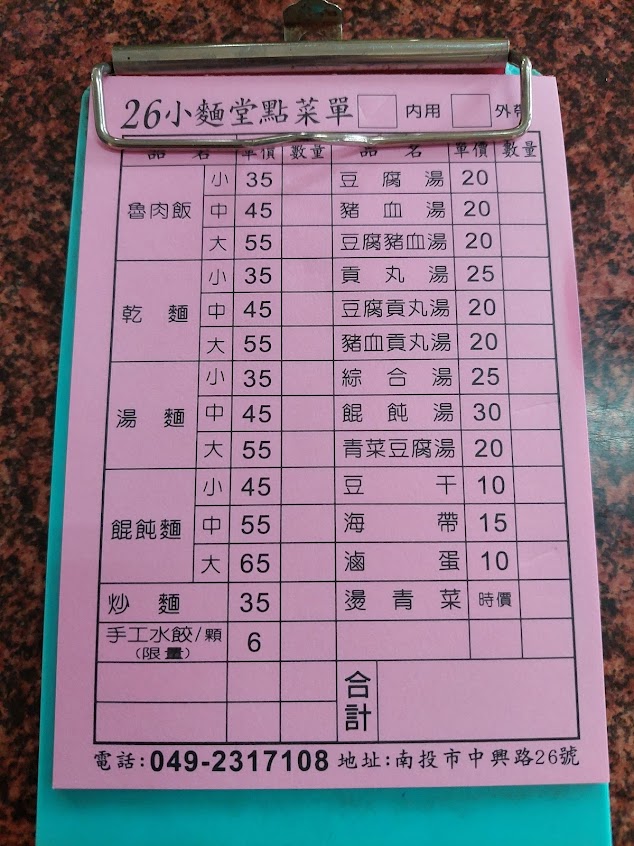 26小麵堂點菜單 內用 外帶
品名 單價 數量 品名 單價 數量
魯肉飯 小 35 豆腐湯 20
中 45 豬血湯 20
大 55 豆腐豬血湯 20
乾麵 小 35 貢丸湯 25
中 45 豆腐貢丸湯 20
大 55 豬血貢丸湯 20
湯麵 小 35 綜合湯 25
中 45 餛飩湯 30
大 55 青菜豆腐湯 20
餛飩麵 小 45 豆干 10
中 55 海帶 15
大 65 滷蛋 10
炒麵 35 燙青菜 時價
手工水餃/顆 6
(限量)
合計
電話:049-2317108 地址:南投市中興路26號